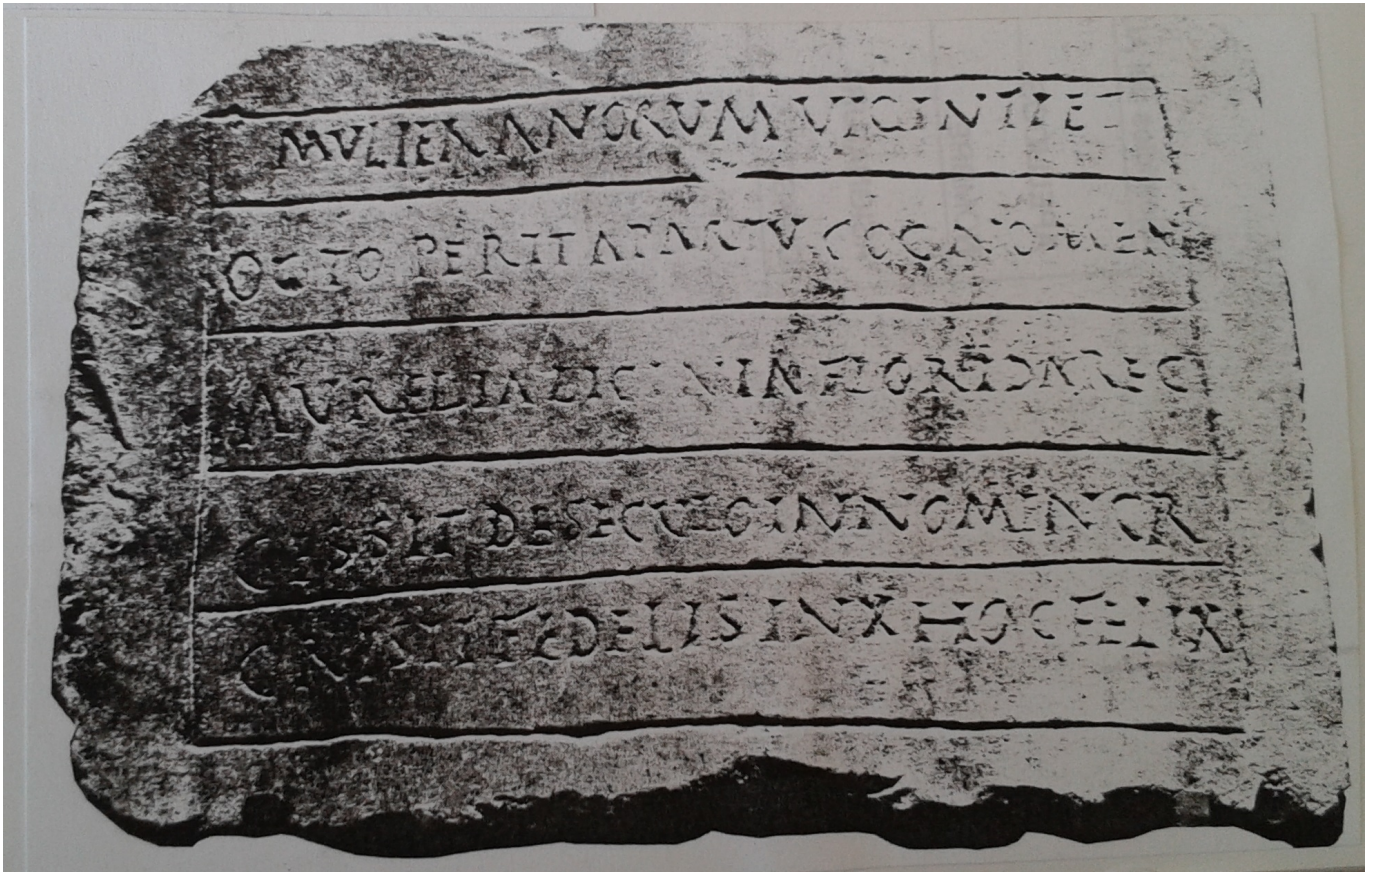 MULIER ANORUM VIGINTI ET
OCTO PERIIT A PARTV COGNOMEN
AURELIA LICINIA FLORIDA REC
CESSIT DE SECULO IN NOMEN CR
FIDELIS IN X HOC FELIX